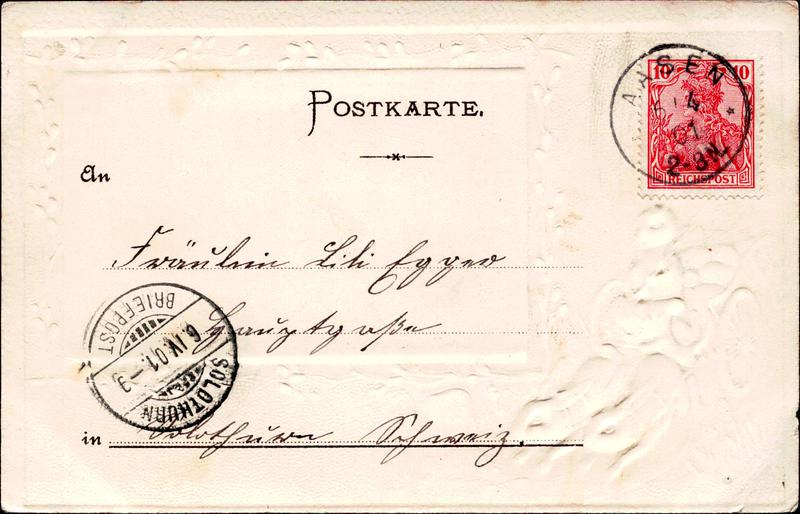 POSTKARTE.
10 10
REICHSPOST
AASEN
4
01
2-3N.
An
Fräulein Lili Egger
Hauptgaße
BRIEFPOST
6.IV.01.-9
SOLOTHURN
in Solothurn Schweiz.